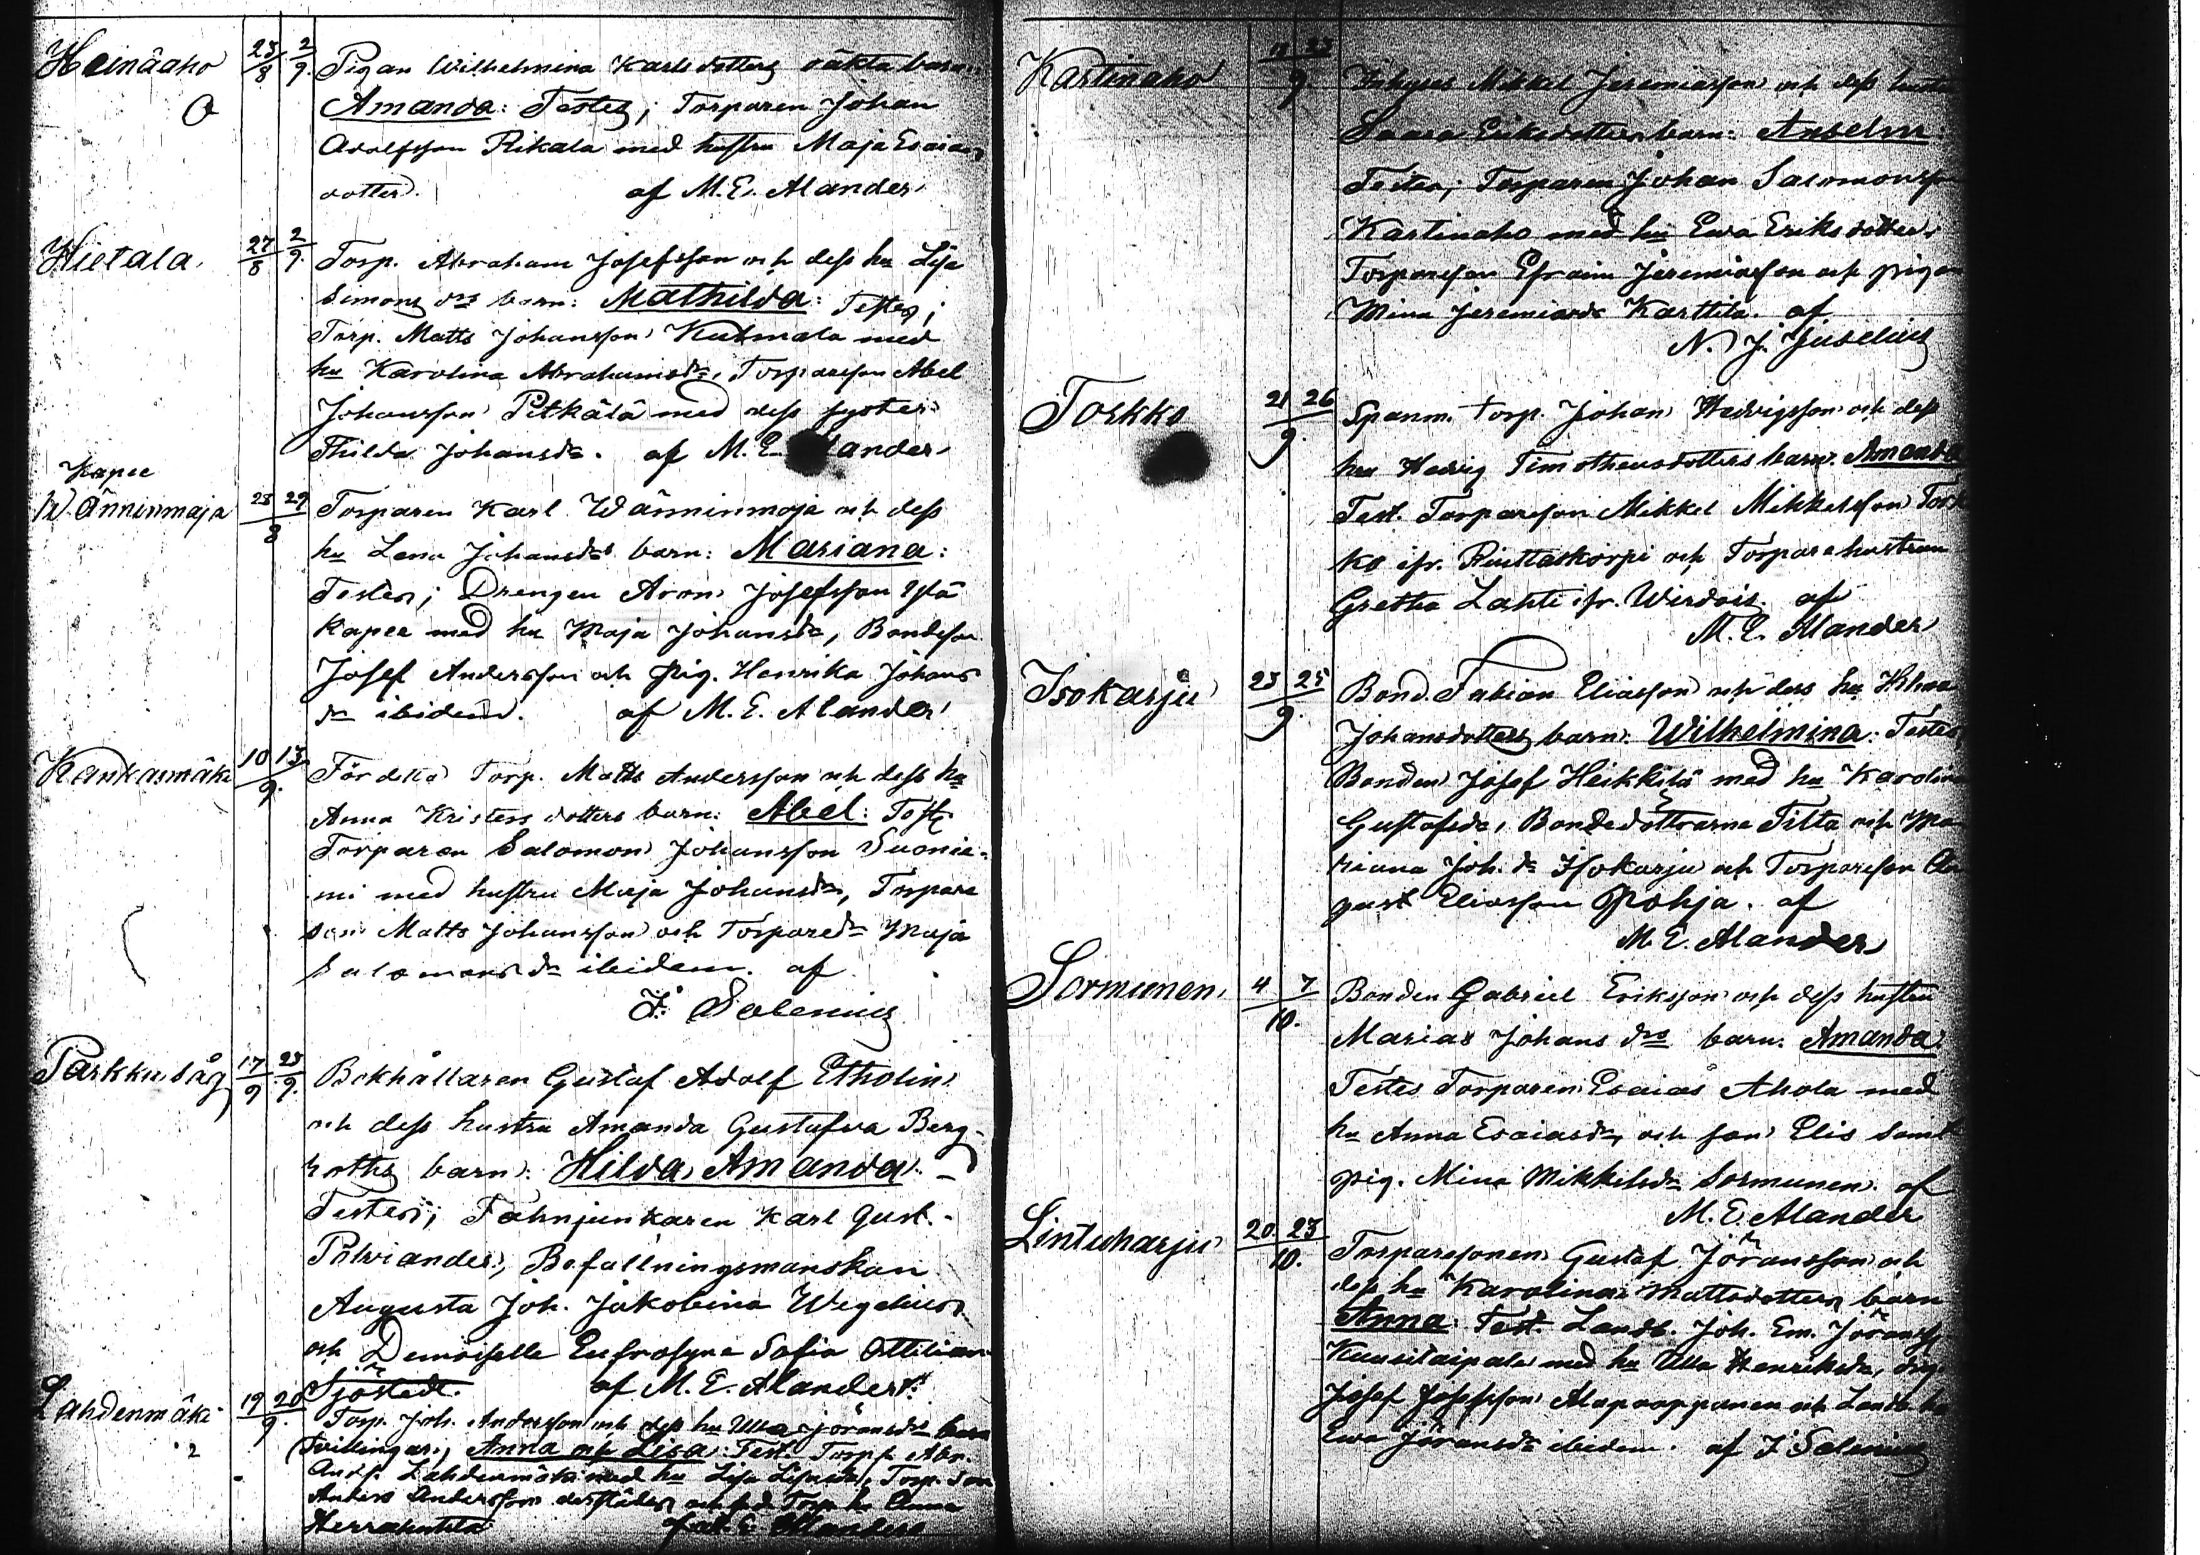 Heinäaho 23/8 2/9. Pigan Wilhelmina Karlsdotters oäkta barn:
Amanda: Testes; Torparen Johan
Adolfsson Rikala med hustru Maja Esaias
dotter. af M. E. Alander
Hietala 27/8 2/9. Torp. Abraham Josefsson och dess hu Lisa
Simons drs barn: Mathilda: Testes;
Torp. Matts Johansson Kutmala med
hu Karolina Abrahamsdr, Torpareson Abel
Johansson Pitkälä med dess syster
Thilda Johansdr. af M. E. Alander
Kapee
Wänninmaja 28 29/8 Torparen Karl Wänninmaja och dess
hu Lena Johansdrs barn: Mariana:
Testes; Drengen Aron Josefsson Ylä
Kapee med hu Maja Johansdr, Bondeson
Josef Andersson och pig. Henrika Johans
dr ibidem. af M. E. Alander
Kankasmäki 10 13/9. Torp. Matts Andersson och dess hu
Anna Kristersdotters barn: Abel: Test.
Torparen Salomon Johansson Suonie-
mi med hustru Maja Johansdr, Torpare
son Matts Johansson och Torparedr Maja
Salomonsdr ibidem. af
F. Salenius
Parkku såg 17/9 23/9. Bokhållaren Gustaf Adolf Etholin
och dess hustru Amanda Gustafva Berg-
roths barn: Hilda Amanda. -
Testes; Fahnjunkaren Karl Gust.
Palviander, Befallningsmanskan
Augusta Joh. Jakobina Wegelius
och Demoiselle Eufrosyne Sofia Ottiliana
Sjöstedt. af M. E. Alander.
Lahdenmäki 19 20/9. Torp. Joh. Andersson och dess hu Ulla Jöransdrs barn
2 tvillingar, Anna och Lisa: Test. Torp. Abr.
Lahdenmäki med hu Lisa Torp. son
Anders Andersson derstädes och Torp. hu Anna
Herrakuhla af M. E. Alander
Kartinaho 18 23/9. Inhyses Mikkel Jeremiasson och dess hustru
Saara Eriksdotters barn: Anselm
Testes; Torparen Johan Salomonsson
Kartinaho med hu Ewa Eriksdotter,
Torpareson Efraim Jeremiasson och pigan
Mina Jeremiasdr Karttila. af
N. J. Juselius
Torkko 21 26/9. Spanm. torp. Johan Hedvigsson och dess
hu Hedvig Timotheusdotters barn. Amanda
Test. Torpareson Mikkel Mikkelsson Tork
ko ifr. Riuttaskorpi och Torparehustrun
Gretha Lahti ifr. Wirdois. af
M. E. Alander
Isokarju 23 25/9. Bond. Fabian Eliasson och dess hu
Johansdotters barn: Wilhelmina: Testes,
Bonden Josef Heikkilä med hu Karolina
Gustafsdr, Bondedöttrarna Tilta och Ma
riana Joh. dr Isokarju och Torpareson Au
gust Eliasson Pohja. af
M. E. Alander
Sormunen 4 7/10. Bonden Gabriel Eriksson och dess hustru
Marias Johans drs barn. Amanda
Testes Torparen Esaias Ahola med
hu Anna Esaiasdr, och son Elis samt
pig. Mina Mikkelsdr Sormunen. af
M. E. Alander
Lintuharju 20 23/10. Torparesonen Gustaf Jöransson och
dess hu Karolina Mattsdotters barn
Anna. Test. Landb. Joh. Em. Jöransson
Kuusitaipale med hu Ulla Henriksdr, drg.
Josef Josefsson Alapoappanen och Landb. hu
Ewa Jöransdr ibidem. af F. Salenius